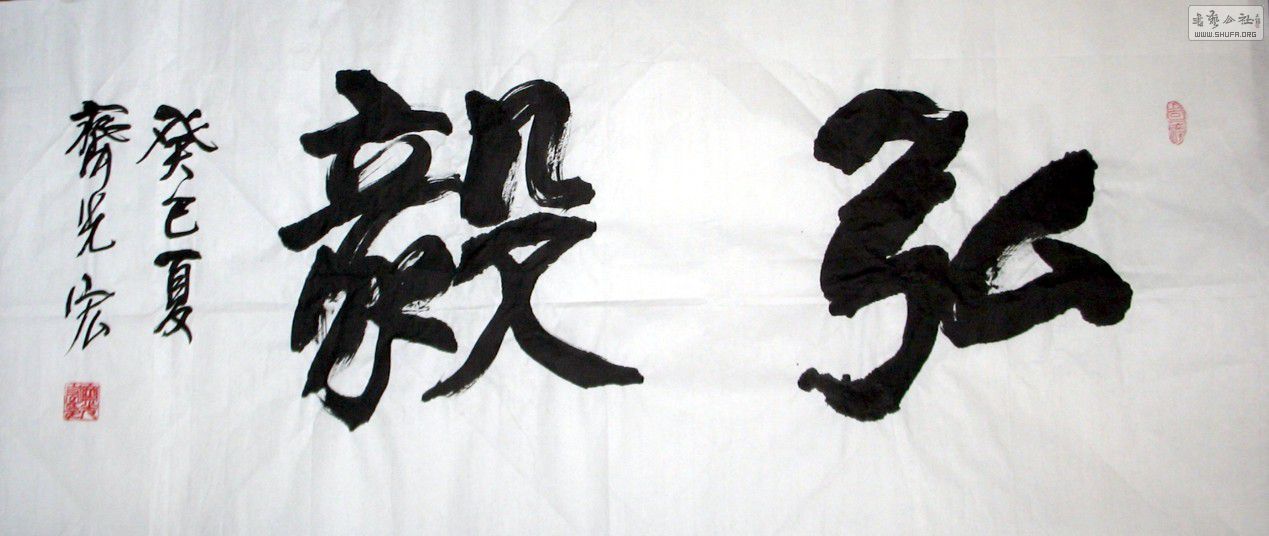 弘毅
癸巳夏
齊光宏
書藝公社
WWW.SHUFA.ORG